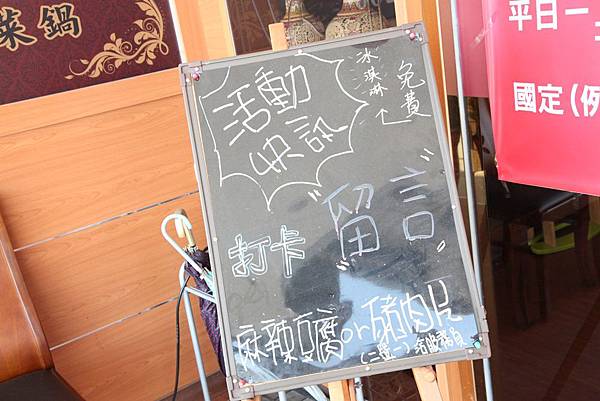 菜鍋
活動
快訊
冰淇淋
免費
打卡 "留言"
麻辣豆腐or豬肉片
(二選一)
平日一
國定(例